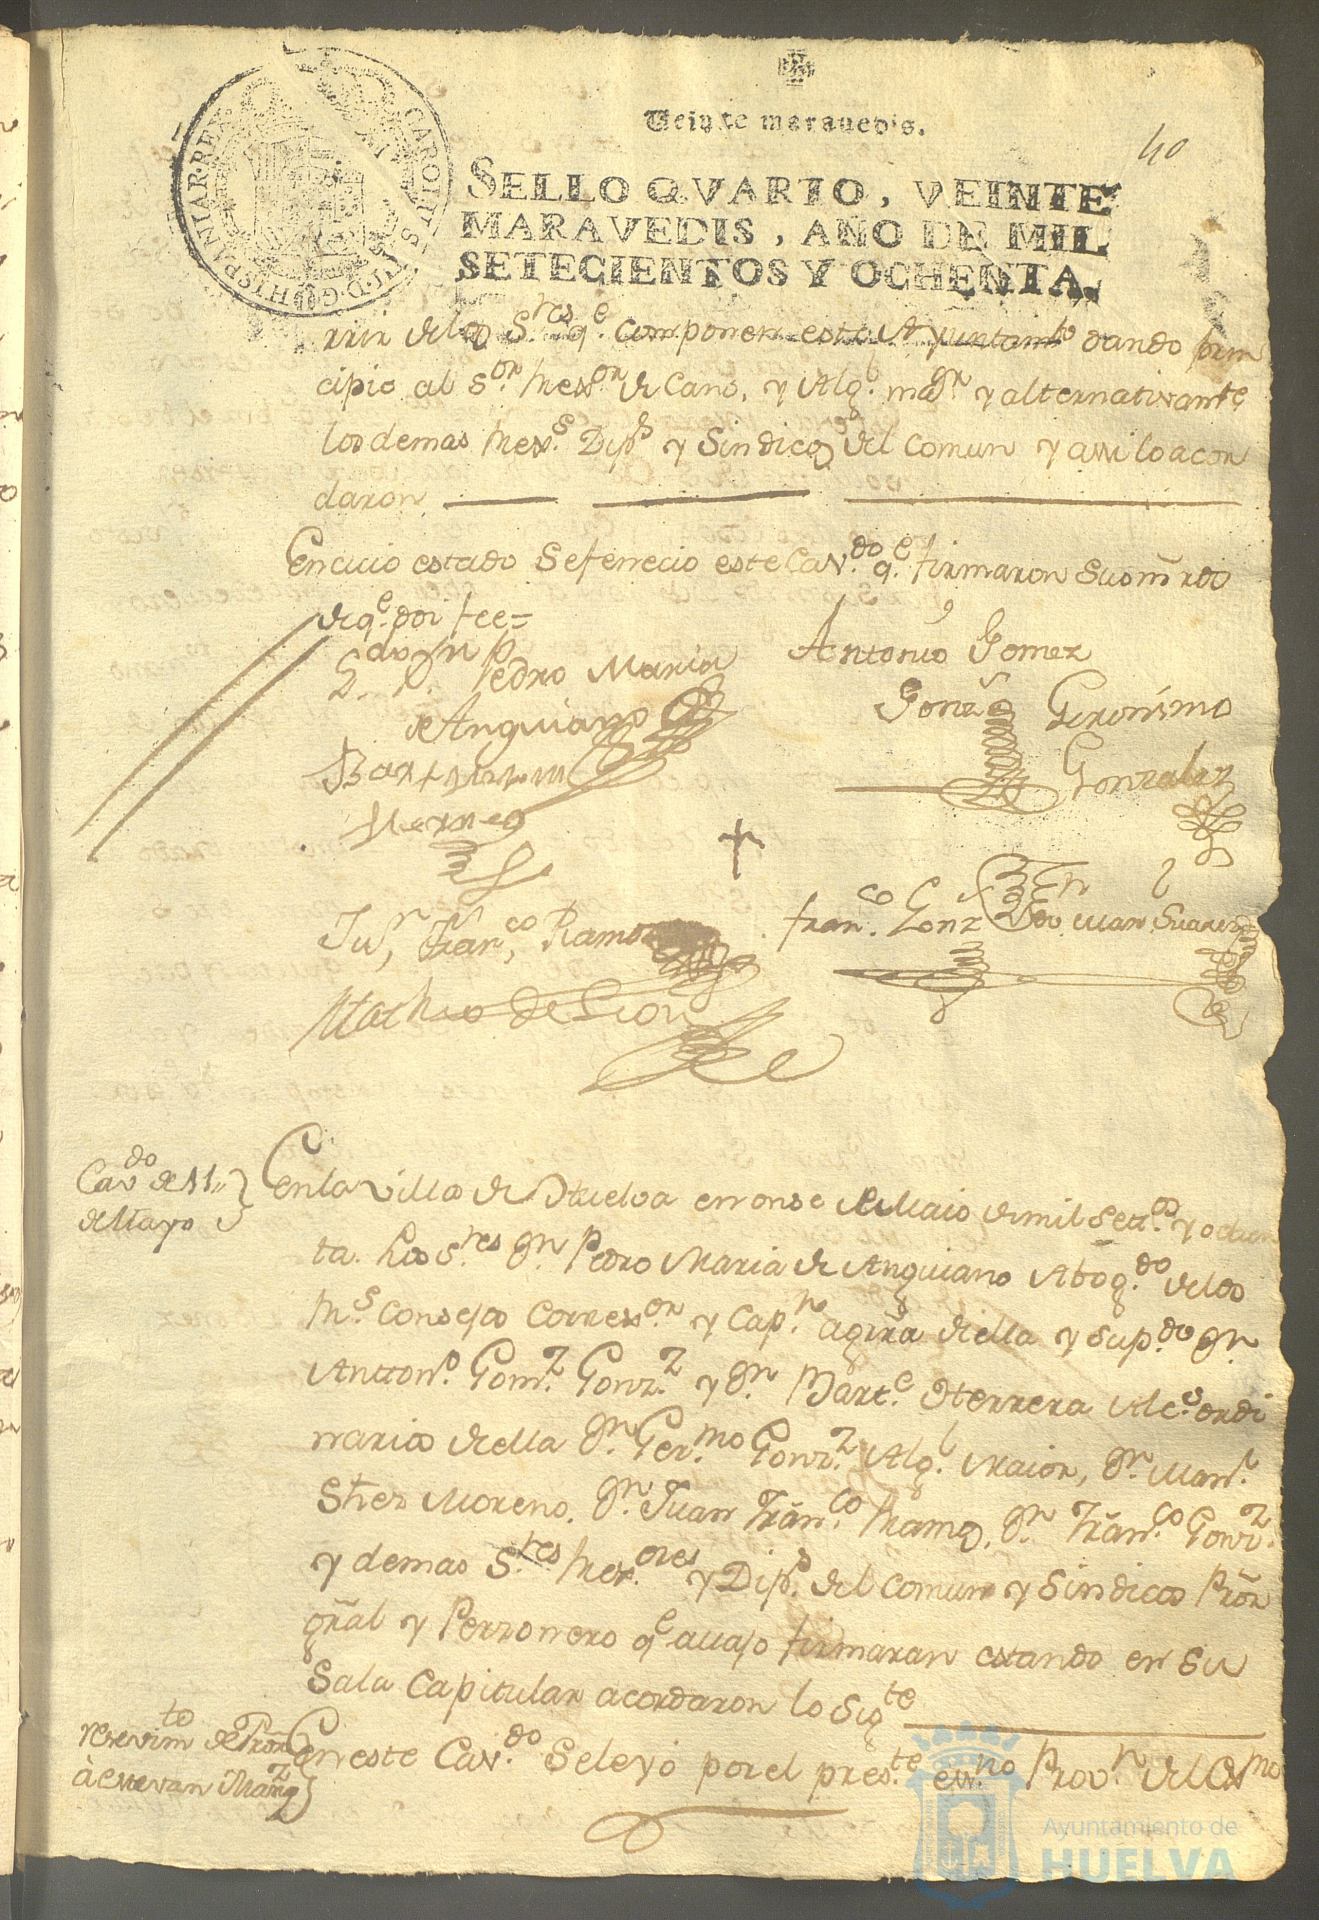 40
Veinte maravedis.
CAROLUS III D. G. HISPANIAR. REX
SELLO QVARTO, VEINTE
MARAVEDIS, AÑO DE MIL
SETECIENTOS Y OCHENTA.
rrir delos S.res q.e componen este Ayuntam.to dando prin
cipio al S.or Rex.or de Cano, y Alg.l maor y alternativam.te
los demas Rex.s Dip.s y Sindicos del Comun y assi lo acor
daron
En cuio estado se fenecio este Cav.do q.e firmaron su
de q.e doi fee=
L. d. Pedro Maria
de Anguiano
Antonio Gomez
Gonz
Geronimo
Gonzalez
Bartholom
Herrera
Fran.co Gonz
Juan Suarez
Ju.n Fran.co Ramos
Matheo de Leon
Cav.do de 11
de Mayo
En la villa de Huelva en onse de Maio de mil set.os y ochen
ta. los S.res Dn Pedro Maria de Anguiano Abog.do delos
R.s Consejos Correx.or y Cap.n a grã de ella y su p.do Dn
Antton.o Gom.z Gonz.z y Dn Bart.e Herrera Alc.s ordi
narios de ella Dn Ger.mo Gonz.z Alg.l Maior, Dn Man.l
Shez Moreno, Dn Juan Frãn.co Ramos, Dn Frãn.co Gonz.z
y demas S.res Rex.ores y Dip.s del Comun y Sindicos Prõr
grãl y Perzonero q.e auajo firmaran estando en su
Sala Capitular acordaron lo sig.te
resevim.to de Prõr
à Estevan Mãrz
En este Cav.do se leyó por el pres.te ess.no Prov.n del Ex.mo
Ayuntamiento de
HUELVA